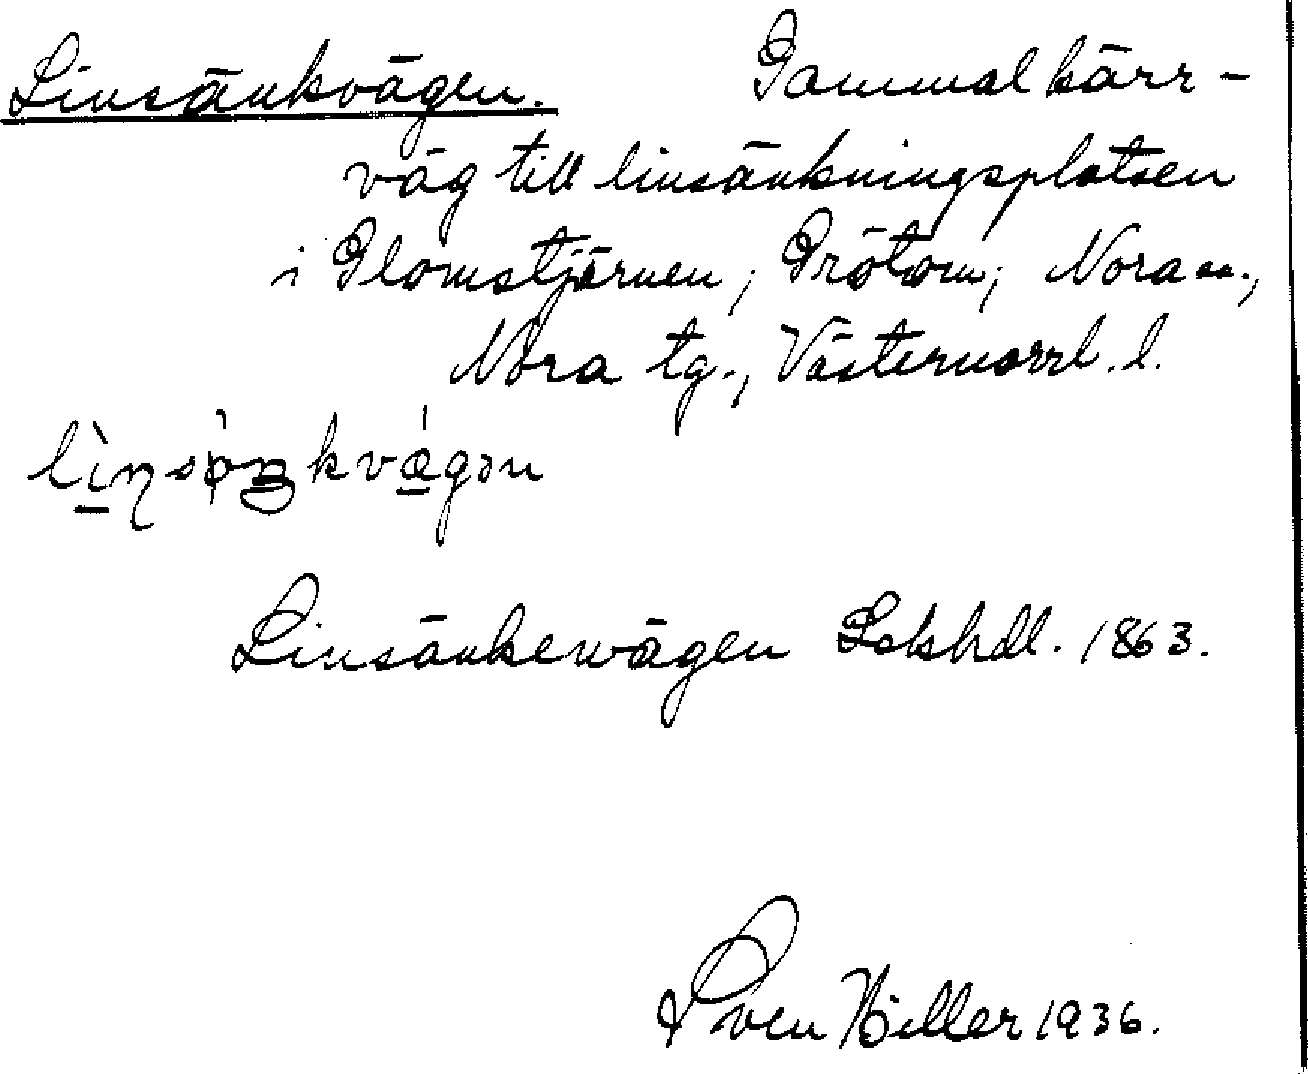 Linsänkvägen. Gammal kärr-
väg till linsänkningsplatsen
i Glomstjärnen, Prötom, Nora sn.,
Nora tg., Västernorrl. l.
Linsänkewägen Lskhdl. 1863.
Sven Hiller 1936.